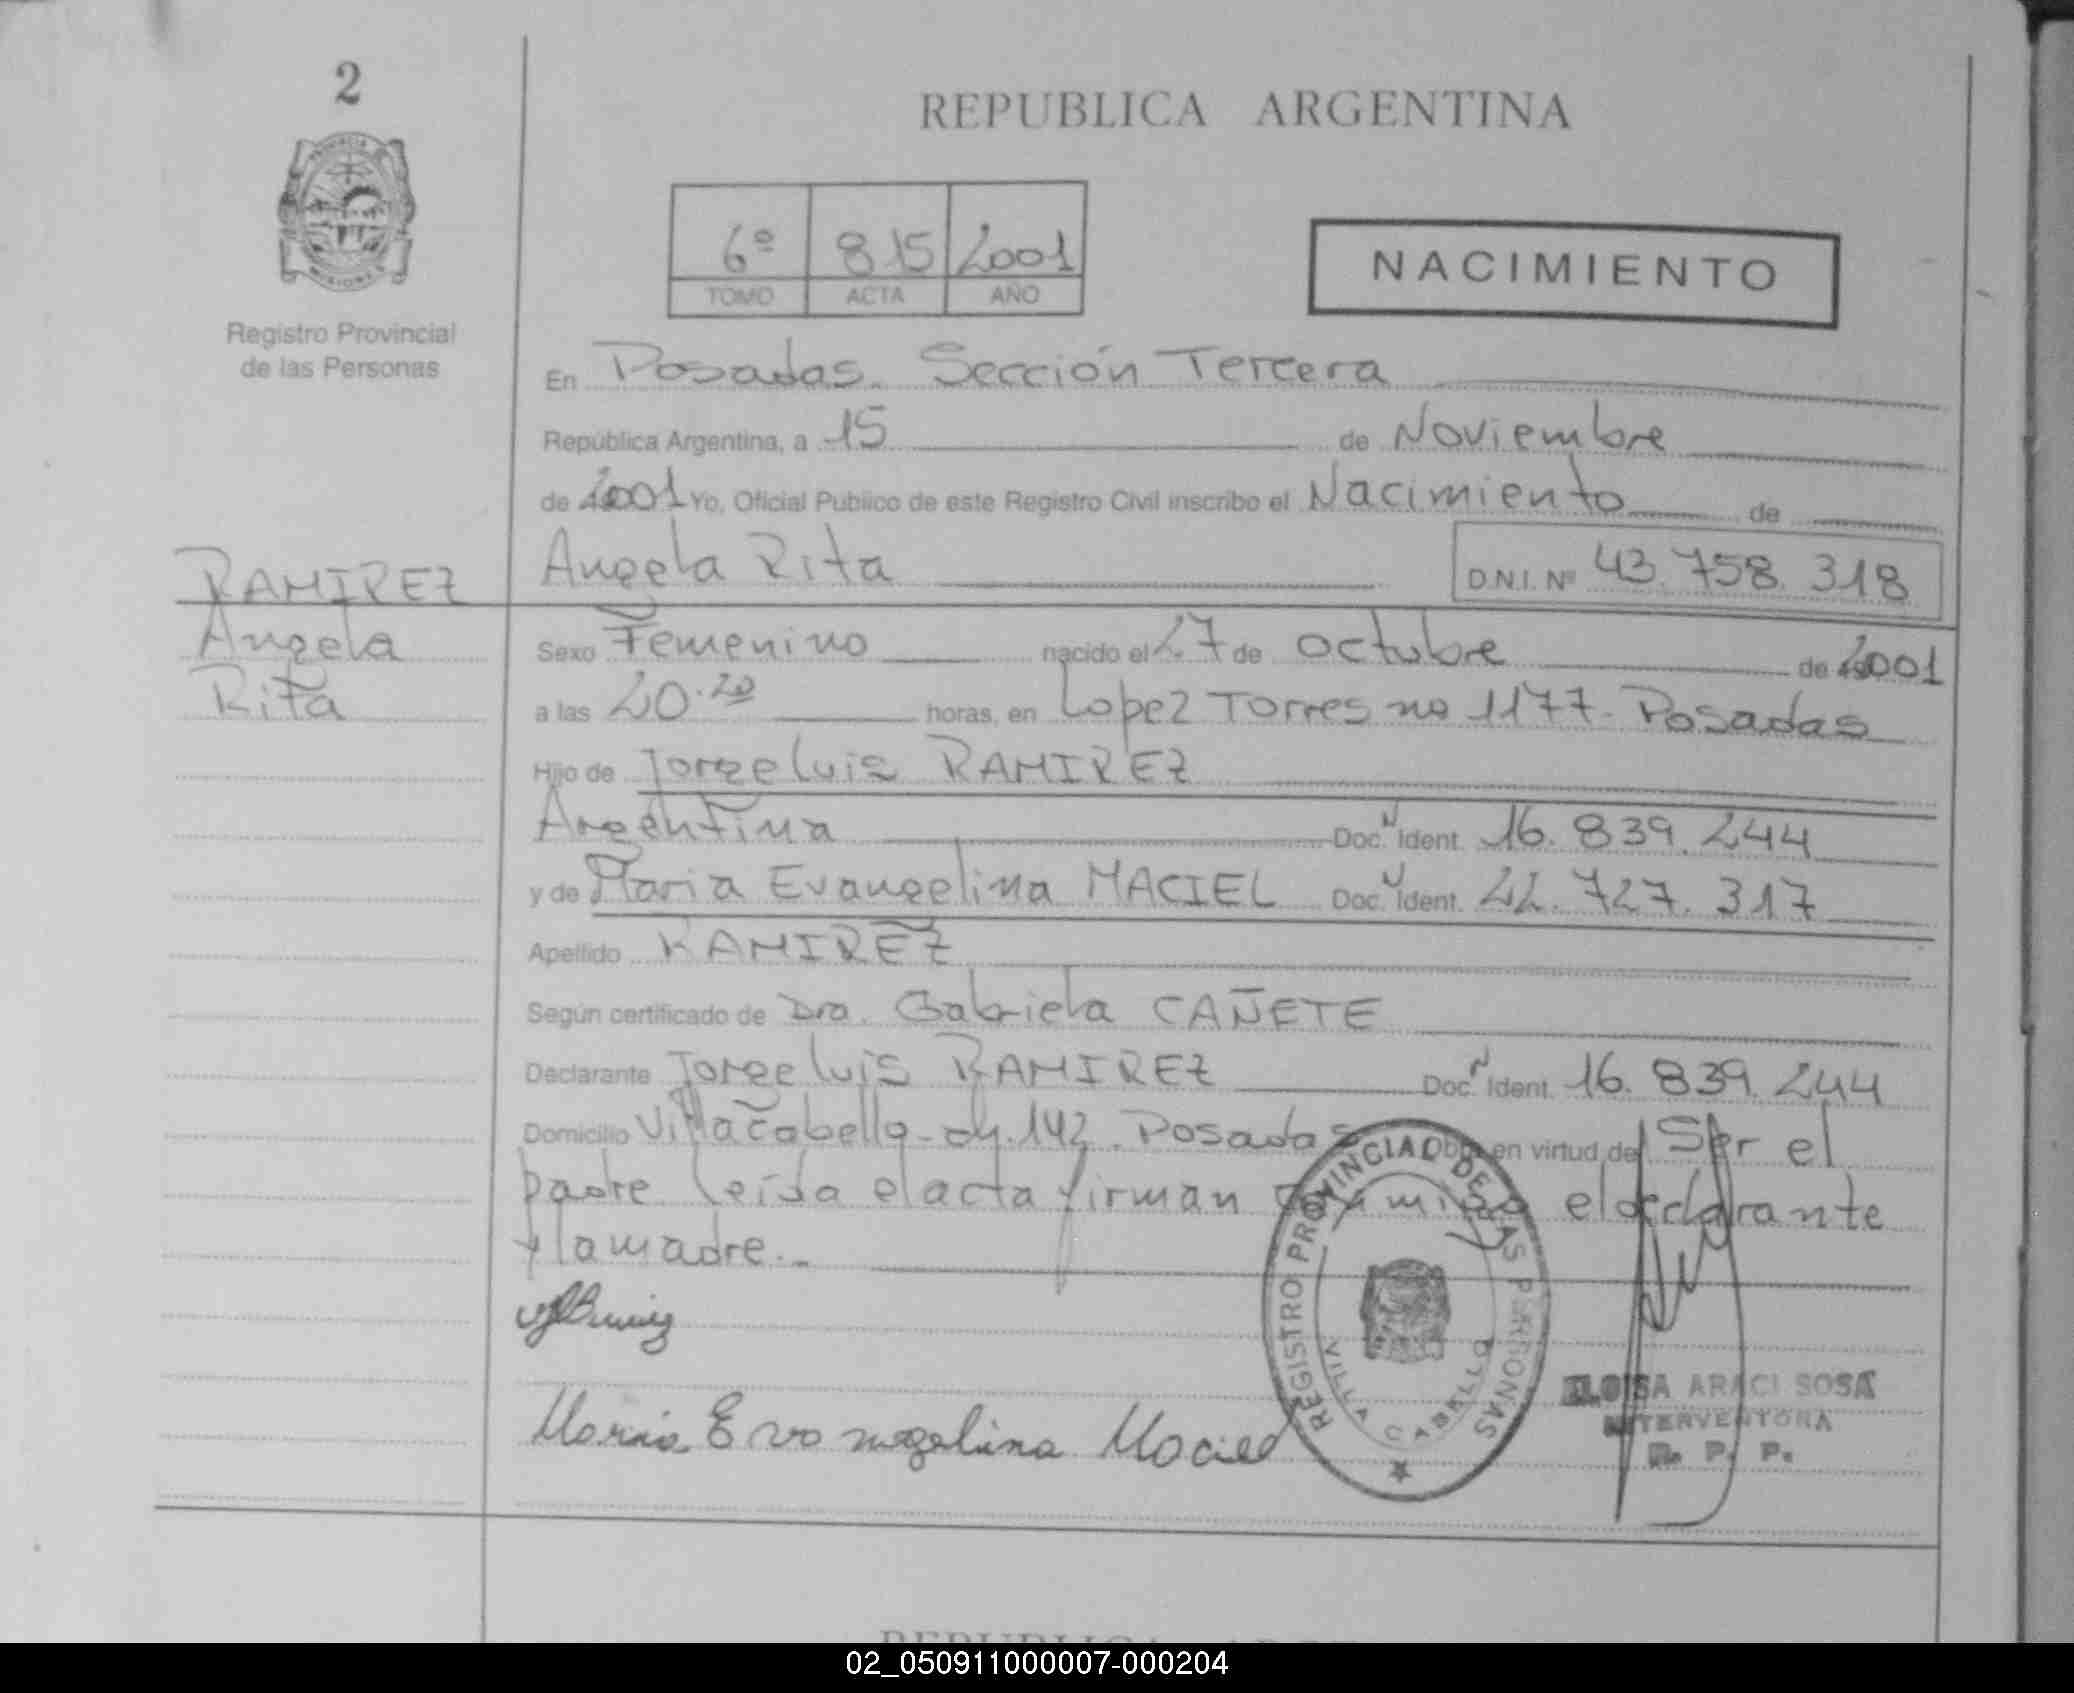 2
REPUBLICA ARGENTINA
6º 815 2001
TOMO ACTA AÑO
NACIMIENTO
Registro Provincial
de las Personas
En Posadas. Sección Tercera
República Argentina, a 15 de Noviembre
de 2001 Yo, Oficial Publico de este Registro Civil inscribo el Nacimiento de
RAMIREZ
Angela
Rita
Angela Rita D.N.I. Nº 43.758.318
Sexo Femenino nacido el 27 de octubre de 2001
a las 20.20 horas, en Lopez Torres no 1177. Posadas
Hijo de Jorge Luis RAMIREZ
Argentina Doc. N Ident. 16.839.244
y de Maria Evangelina MACIEL Doc. N Ident. 22.727.317
Apellido RAMIREZ
Según certificado de Dra. Gabriela CAÑETE
Declarante Jorge Luis RAMIREZ Doc. N Ident. 16.839.244
Domicilio Villa Cabello - ch. 142. Posadas Obra en virtud de Ser el
padre leída el acta firman conmigo el declarante
y la madre.-
Maria Evangelina Maciel
REGISTRO PROVINCIAL DE LAS PERSONAS
VILLA CABELLO
ELOISA ARACI SOSA
INTERVENTORA
R. P. P.
02_050911000007-000204